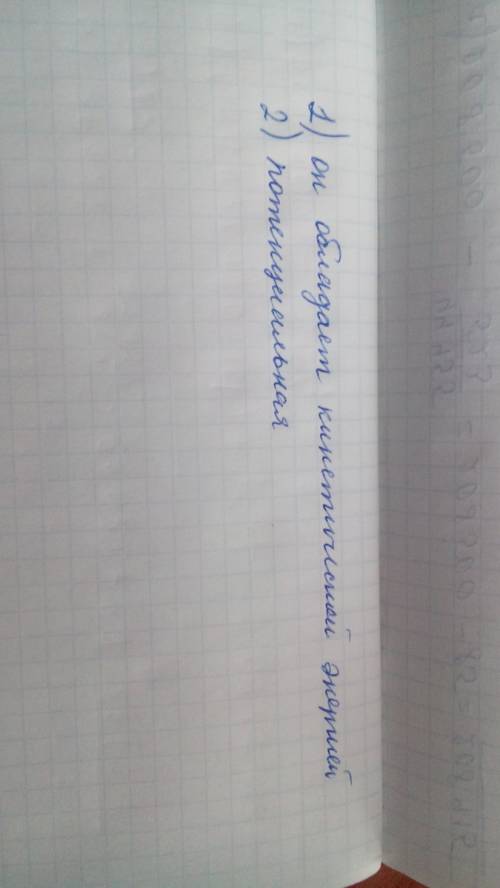 1) он обладает кинетической энергией
2) потенциальная